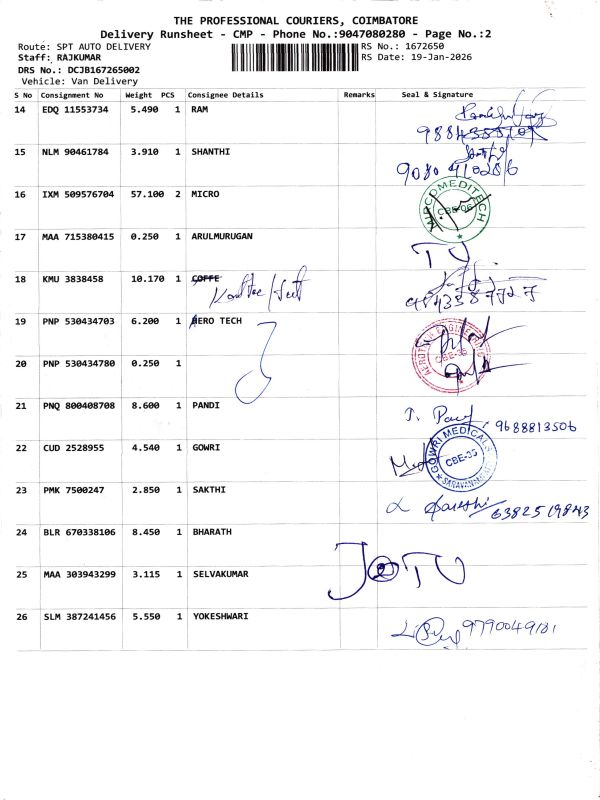 THE PROFESSIONAL COURIERS, COIMBATORE
Delivery Runsheet - CMP - Phone No.:9047080280 - Page No.:2
Route: SPT AUTO DELIVERY
RS No.: 1672650
Staff: RAJKUMAR
RS Date: 19-Jan-2026
DRS No.: DCJB167265002
Vehicle: Van Delivery
S No Consignment No Weight PCS Consignee Details Remarks Seal & Signature
14 EDQ 11553734 5.490 1 RAM
15 NLM 90461784 3.910 1 SHANTHI
9080410286
16 IXM 509576704 57.100 2 MICRO
MEDITECH CBE-06
17 MAA 715380415 0.250 1 ARULMURUGAN
18 KMU 3838458 10.170 1 COFFE
19 PNP 530434703 6.200 1 AERO TECH
CBE-35
20 PNP 530434780 0.250 1
21 PNQ 800408708 8.600 1 PANDI
9688813506
22 CUD 2528955 4.540 1 GOWRI
GOWRI MEDICALS CBE-35
23 PMK 7500247 2.850 1 SAKTHI
6382519843
24 BLR 670338106 8.450 1 BHARATH
25 MAA 303943299 3.115 1 SELVAKUMAR
26 SLM 387241456 5.550 1 YOKESHWARI
9790049181